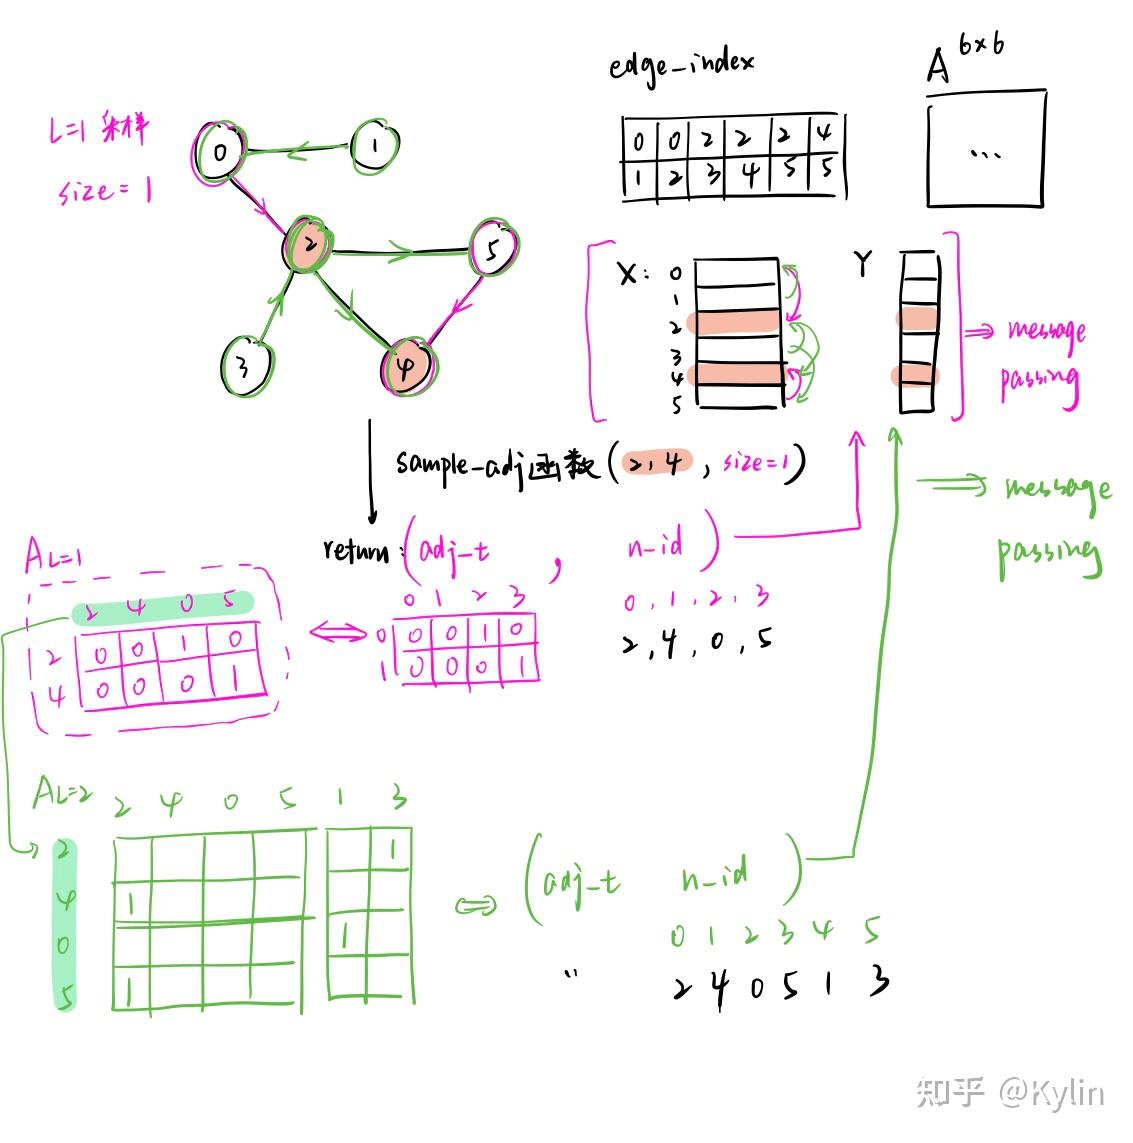 edge_index
A 6×6
L=1 采样
size = 1
0
1
2
5
3
4
0 0 2 2 2 4
1 2 3 4 5 5
...
X: 0
1
2
3
4
5
Y
⇒ message
passing
sample_adj函数 (2,4, size=1)
⇒ message
passing
return: (adj_t, n_id)
A L=1
2 4 0 5
2 0 0 1 0
4 0 0 0 1
⇔
0 1 2 3
0 0 0 1 0
1 0 0 0 1
0, 1, 2, 3
2, 4, 0, 5
A L=2
2 4 0 5 1 3
2 1
4 1
0 1
5 1
⇔
(adj_t n_id)
0 1 2 3 4 5
" 2 4 0 5 1 3
知乎 @Kylin